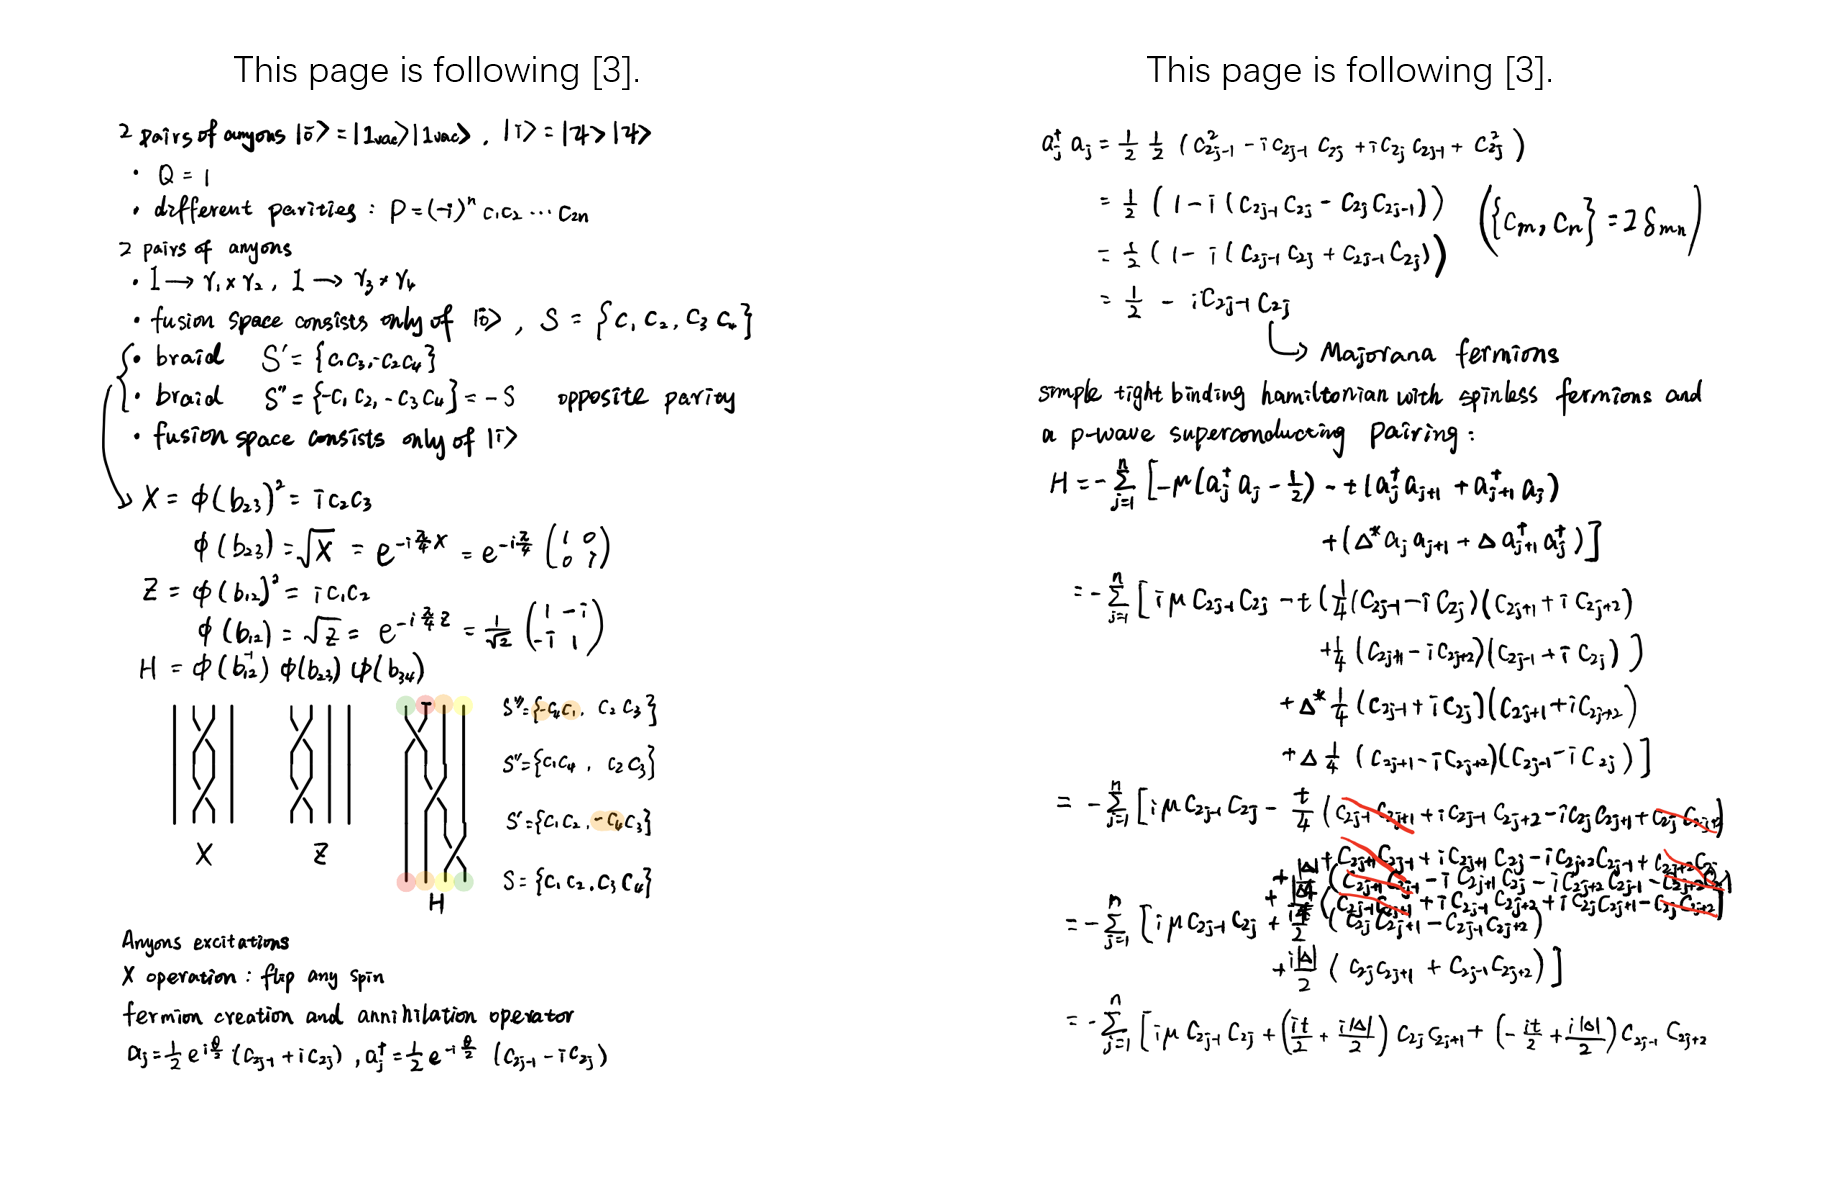 This page is following [3].
2 pairs of anyons |0̄> = |1vac>|1vac>, |1̄> = |ψ>|ψ>
• Q = 1
• different parities : P = (-i)ⁿ c₁c₂ ⋯ c₂ₙ
2 pairs of anyons
• 1 → γ₁ × γ₂, 1 → γ₃ × γ₄
• fusion space consists only of |0̄>, S = {c₁c₂, c₃c₄}
• braid S' = {c₁c₃, -c₂c₄}
• braid S" = {-c₁c₂, -c₃c₄} = -S opposite parity
• fusion space consists only of |1̄>
X = ϕ(b₂₃)² = ic₂c₃
ϕ(b₂₃) = √X = e^{-iπ/4 X} = e^{-iπ/4} (1 0
0 i)
Z = ϕ(b₁₂)² = ic₁c₂
ϕ(b₁₂) = √Z = e^{-iπ/4 Z} = 1/√2 (1 -i
-i 1)
H = ϕ(b₁₂⁻¹) ϕ(b₂₃) ϕ(b₃₄)
S"' = {-c₄c₁, c₂c₃}
S" = {c₁c₄, c₂c₃}
S' = {c₁c₂, -c₄c₃}
S = {c₁c₂, c₃c₄}
X Z H
Anyons excitations
X operation : flip any spin
fermion creation and annihilation operator
aⱼ = 1/2 e^{iθ/2} (c₂ⱼ₋₁ + ic₂ⱼ), aⱼ† = 1/2 e^{-iθ/2} (c₂ⱼ₋₁ - ic₂ⱼ)
This page is following [3].
aⱼ† aⱼ = 1/2 1/2 (c²₂ⱼ₋₁ - ic₂ⱼ₋₁ c₂ⱼ + ic₂ⱼ c₂ⱼ₋₁ + c²₂ⱼ)
= 1/2 (1 - i(c₂ⱼ₋₁ c₂ⱼ - c₂ⱼ c₂ⱼ₋₁)) ({cₘ, cₙ} = 2δₘₙ)
= 1/2 (1 - i(c₂ⱼ₋₁ c₂ⱼ + c₂ⱼ₋₁ c₂ⱼ))
= 1/2 - ic₂ⱼ₋₁ c₂ⱼ
↳ Majorana fermions
simple tight binding hamiltonian with spinless fermions and
a p-wave superconducting pairing :
H = -Σⁿⱼ₌₁ [-μ(aⱼ† aⱼ - 1/2) - t(aⱼ† aⱼ₊₁ + aⱼ₊₁† aⱼ)
+ (Δ* aⱼ aⱼ₊₁ + Δ aⱼ₊₁† aⱼ†)]
= -Σⁿⱼ₌₁ [iμ c₂ⱼ₋₁ c₂ⱼ - t(1/4 (c₂ⱼ₋₁ - i c₂ⱼ)(c₂ⱼ₊₁ + i c₂ⱼ₊₂)
+ 1/4 (c₂ⱼ₊₁ - ic₂ⱼ₊₂)(c₂ⱼ₋₁ + i c₂ⱼ))
+ Δ* 1/4 (c₂ⱼ₋₁ + ic₂ⱼ)(c₂ⱼ₊₁ + ic₂ⱼ₊₂)
+ Δ 1/4 (c₂ⱼ₊₁ - ic₂ⱼ₊₂)(c₂ⱼ₋₁ - ic₂ⱼ)]
= -Σⁿⱼ₌₁ [iμ c₂ⱼ₋₁ c₂ⱼ - t/4 (c₂ⱼ₋₁ c₂ⱼ₊₁ + ic₂ⱼ₋₁ c₂ⱼ₊₂ - ic₂ⱼ c₂ⱼ₊₁ + c₂ⱼ c₂ⱼ₊₂
+ c₂ⱼ₊₁ c₂ⱼ₋₁ + ic₂ⱼ₊₁ c₂ⱼ - ic₂ⱼ₊₂ c₂ⱼ₋₁ + c₂ⱼ₊₂ c₂ⱼ)
+ |Δ|/4 (c₂ⱼ₊₁ c₂ⱼ₋₁ - ic₂ⱼ₊₁ c₂ⱼ - ic₂ⱼ₊₂ c₂ⱼ₋₁ - c₂ⱼ₊₂ c₂ⱼ)
+ |Δ|/4 (c₂ⱼ₋₁ c₂ⱼ₊₁ + ic₂ⱼ₋₁ c₂ⱼ₊₂ + ic₂ⱼ c₂ⱼ₊₁ - c₂ⱼ c₂ⱼ₊₂)]
= -Σⁿⱼ₌₁ [iμ c₂ⱼ₋₁ c₂ⱼ + it/2 (c₂ⱼ c₂ⱼ₊₁ - c₂ⱼ₋₁ c₂ⱼ₊₂)
+ i|Δ|/2 (c₂ⱼ c₂ⱼ₊₁ + c₂ⱼ₋₁ c₂ⱼ₊₂)]
= -Σⁿⱼ₌₁ [iμ c₂ⱼ₋₁ c₂ⱼ + (it/2 + i|Δ|/2) c₂ⱼ c₂ⱼ₊₁ + (-it/2 + i|Δ|/2) c₂ⱼ₋₁ c₂ⱼ₊₂